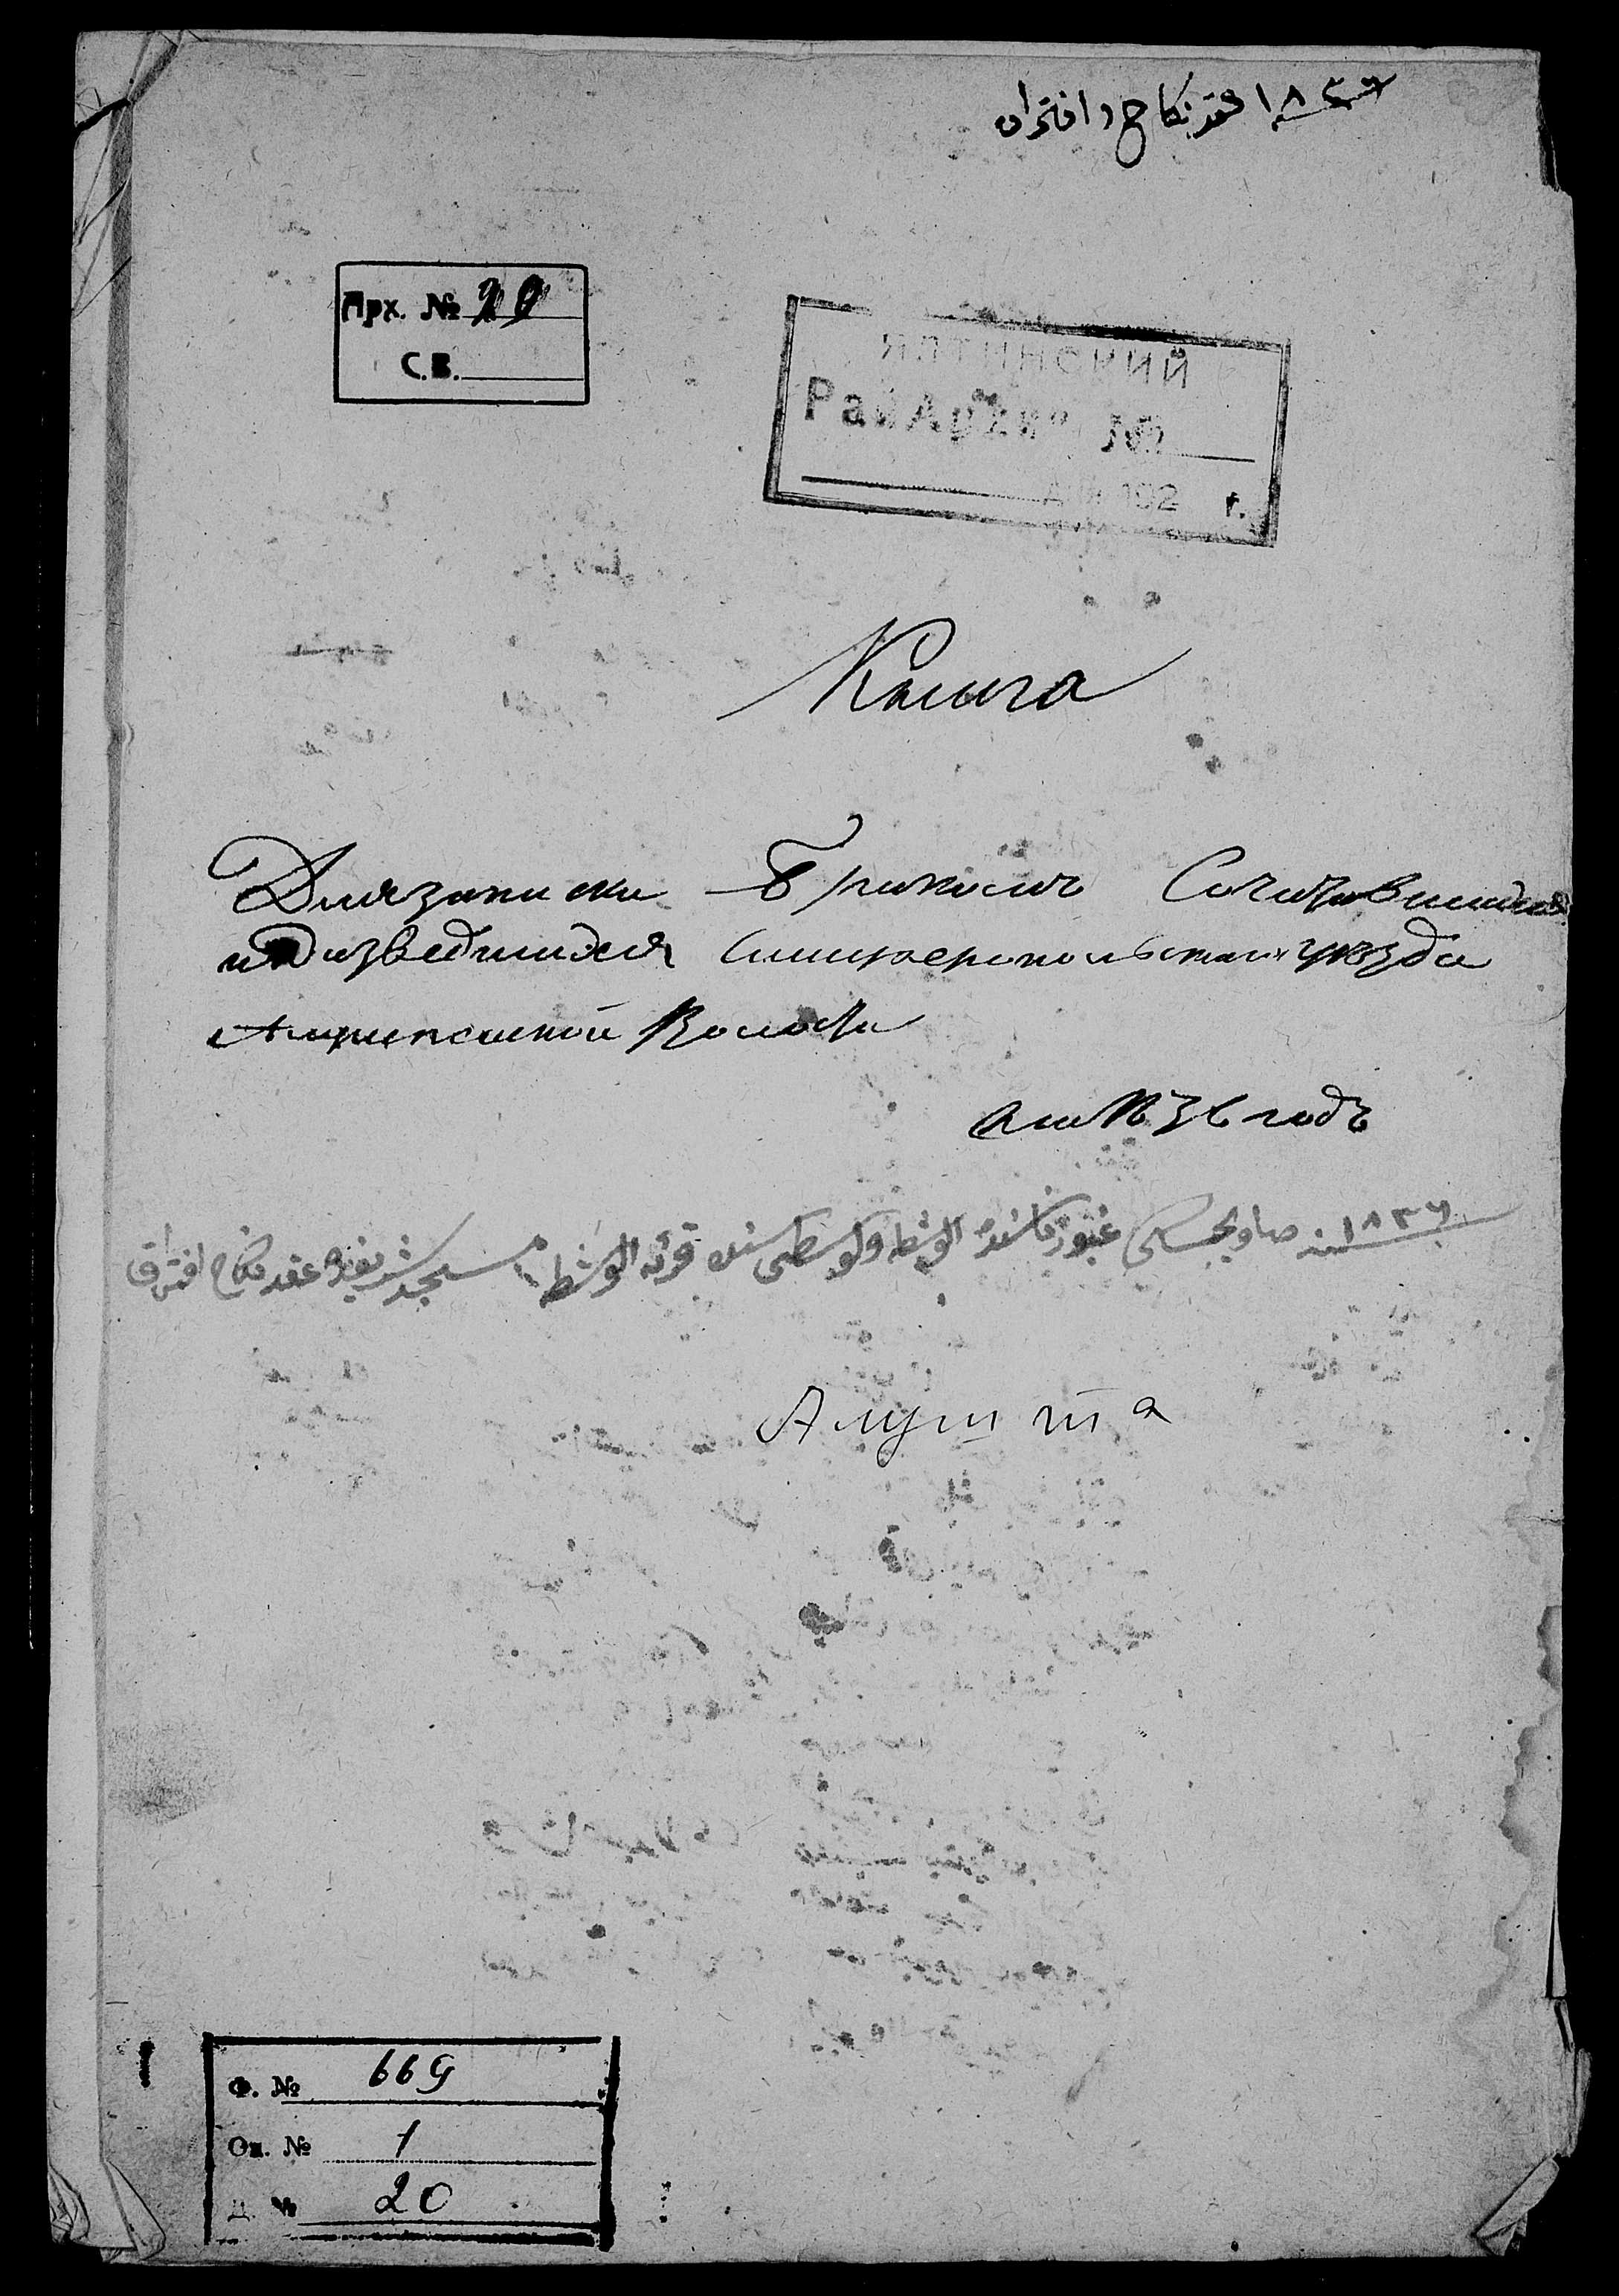 ١٨٣٦ عقد نكاح و افتراق
Арх. № 20
С.В.
ЯЛТИНСКИЙ
РайАрхив №
192 г.
Книга
Для записки Бракомъ Сочитавшихся
и разведшихся Симферопольскаго уезда
Алуштской Волости
на 1836 годъ
١٨٣٦ سنه قريه الوشطه مسجد شريفنده عقد نكاح افتراق
Алушта
Ф. № 669
Оп. № 1
Д. № 20